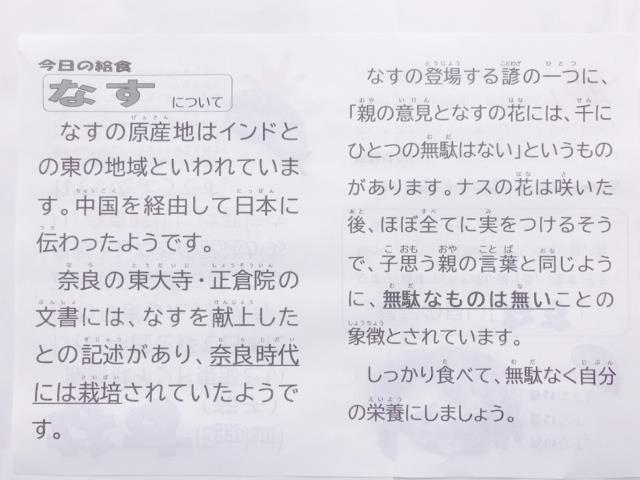 今日の給食
なす について
なすの原産地はインドと
の東の地域といわれていま
す。中国を経由して日本に
伝わったようです。
奈良の東大寺・正倉院の
文書には、なすを献上した
との記述があり、奈良時代
には栽培されていたようで
す。
なすの登場する諺の一つに、
「親の意見となすの花には、千に
ひとつの無駄はない」というもの
があります。ナスの花は咲いた
後、ほぼ全てに実をつけるそう
で、子思う親の言葉と同じよう
に、無駄なものは無いことの
象徴とされています。
しっかり食べて、無駄なく自分
の栄養にしましょう。